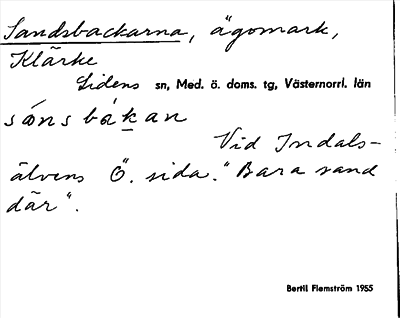 Sandsbackarna, ägomark,
Klärke
Lidens sn, Med. ö. doms. tg, Västernorrl. län
sánsbákan
Vid Indals-
älvens Ö. sida. "Bara sand
där".
Bertil Flemström 1955